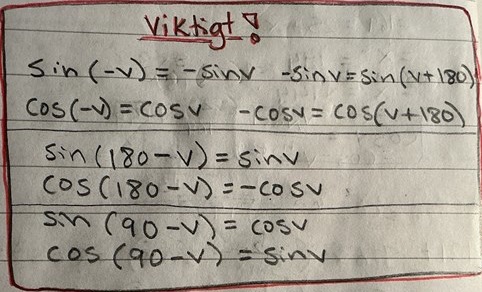 Viktigt!
sin(-v) = -sinv -sinv = sin(v+180)
cos(-v) = cosv -cosv = cos(v+180)
sin(180-v) = sinv
cos(180-v) = -cosv
sin (90-v) = cosv
cos (90-v) = sinv